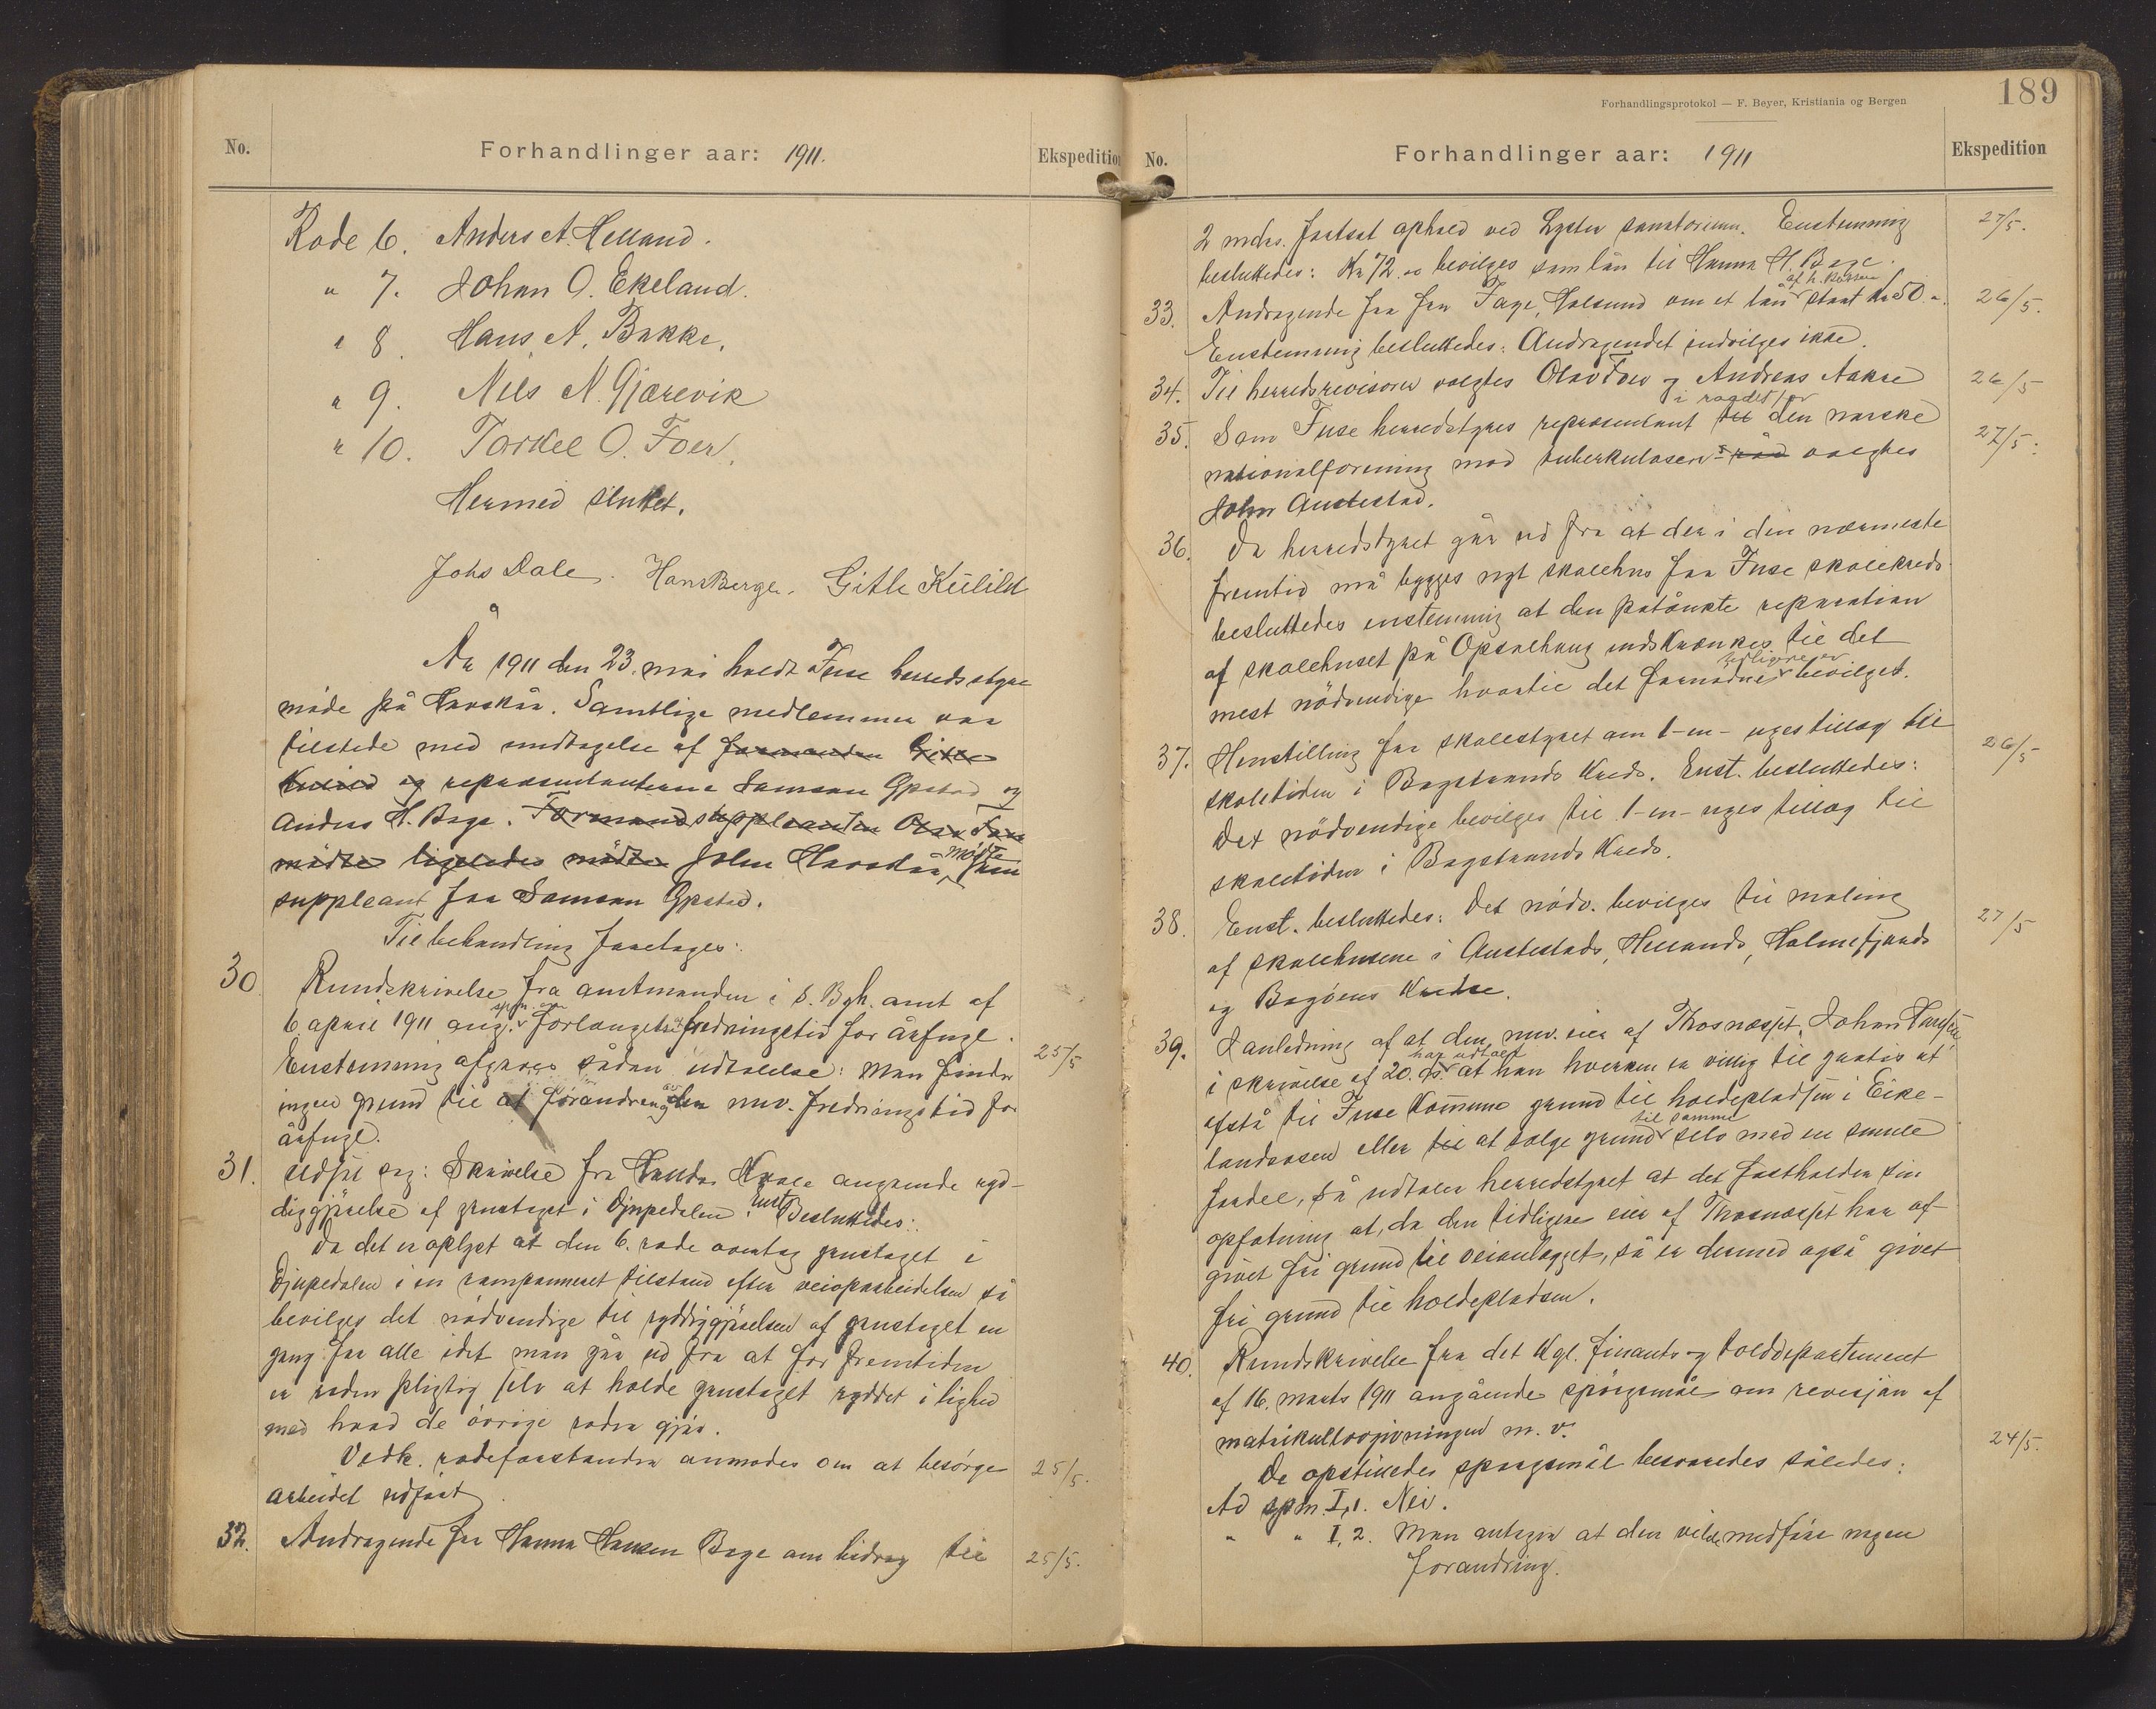 No.
Forhandlinger aar: 1911.
Ekspedition
Rode 6. Anders A. Helland.
" 7. Johan O. Ekeland.
" 8. Hans A. Bakke.
" 9. Nils N. Gjærevik
" 10. Torkel O. Foer.
Hermed sluttet.
Johs Dale. Hans Berge. Gitle Kulild
År 1911 den 23. mai holdt Fuse herredsstyre
möde på Havskår. Samtlige medlemmer var
tilstede med undtagelse af formanden Gitle
Kulild og repræsentanterne Samson Gpstad og
Anders H. Berge. Formandsuppleanten Olav Foer
mödte ligeledes mödte John Havskår, mødte som
suppleant for Samson Gpstad.
Til behandling foretoges:
30 Rundskrivelse fra amtmanden i S. Bgh. amt af
6. april 1911 ang. spm. om forlænget fredningstid for årfugl.
Enstemmig afgaves sådan udtalelse: Man finder
ingen grund til at forandring av den nuv. fredningstid for
årfugl. 25/5
31. Udsat sag: Skrivelse fra angående ryd-
diggjörelse af grustaget i Djupedalen. Enst. Besluttedes:
Da det er oplyst at den 6. rode overtog grustaget i
Djupedalen i en ramponeret tilstand efter veioparbeidelsen så
bevilges det nödvendige til ryddiggjörelsen af grustaget en
gang for alle idet man går ud fra at for fremtiden
er roden pligtig selv at holde grustaget ryddet i lighed
med hvad de övrige roder gjör.
Vedk. rodeforstander anmodes om at besörge
arbeidet udfört. 25/5.
32. Andragende fra Hanna Hansen Berge om bidrag til 25/5.
Forhandlingsprotokol — F. Beyer, Kristiania og Bergen
189
No.
Forhandlinger aar: 1911
Ekspedition
2 mdrs. fortsat ophold ved Lyster sanatorium. Enstemmig 27/5.
besluttedes: Kr 72.00 bevilges som lån til Hanna H. Berge.
33. Andragende fra fru Fage, Holsund om et lån af h. kassen stort kr 50.-. 26/5.
Enstemmig besluttedes: Andragendet indvilges ikke.
34. Til herredsrevisorer valgtes Olav Foer og Andreas Aakre 26/5
35. Som Fuse herredstyres repræsentant til i raadet for den norske
nationalforening mod tuberkulosen råd valgtes 27/5.
John Austestad.
36. Da herredstyret går ud fra at der i den nærmeste
fremtid må bygges nyt skolehus for Fuse skolekreds
besluttedes enstemmig at den påtænkte reparation
af skolehuset på Opsalhaug indskrænkes til det
mest nödvendige hvortil det fornødne tidligere er bevilget.
37. Henstilling fra skolestyret om 1-en- uges tillæg til
skoletiden i Bogstrands kreds. Enst. besluttedes: 26/5
Det nödvendige bevilges til 1-en- uges tillæg til
skoletiden i Bogstrands kreds.
38. Enst. besluttedes: Det nödv. bevilges til maling 27/5
af skolehusene i Austestads, Hellands, Holmefjords
og Bogöens kredse.
39. I anledning af at den nuv. eier af Thosnæsset, Johan
i skrivelse af 20. ds. har udtalt at han hverken er villig til gratis at
afstå til Fuse kommune grund til holdepladsen i Eike-
landsosen eller til at sælge grund til samme selv med en smule
fordel, så udtaler herredstyret at det fastholder sin
opfatning at, da den tidligere eier af Thosnæsset har af-
givet fri grund til veianlægget, så er dermed også givet
fri grund til holdepladsen.
40. Rundskrivelse fra det kgl. finants- og tolddepartement
af 16. marts 1911 angående spörgsmål om revisjon af
matrikullovgivningen m. v.
De opstillede spørgsmål besvaredes således: 24/5.
Ad spm. I, 1. Nei.
" " I, 2. Man antager at den vilde medføre nogen
forandring.